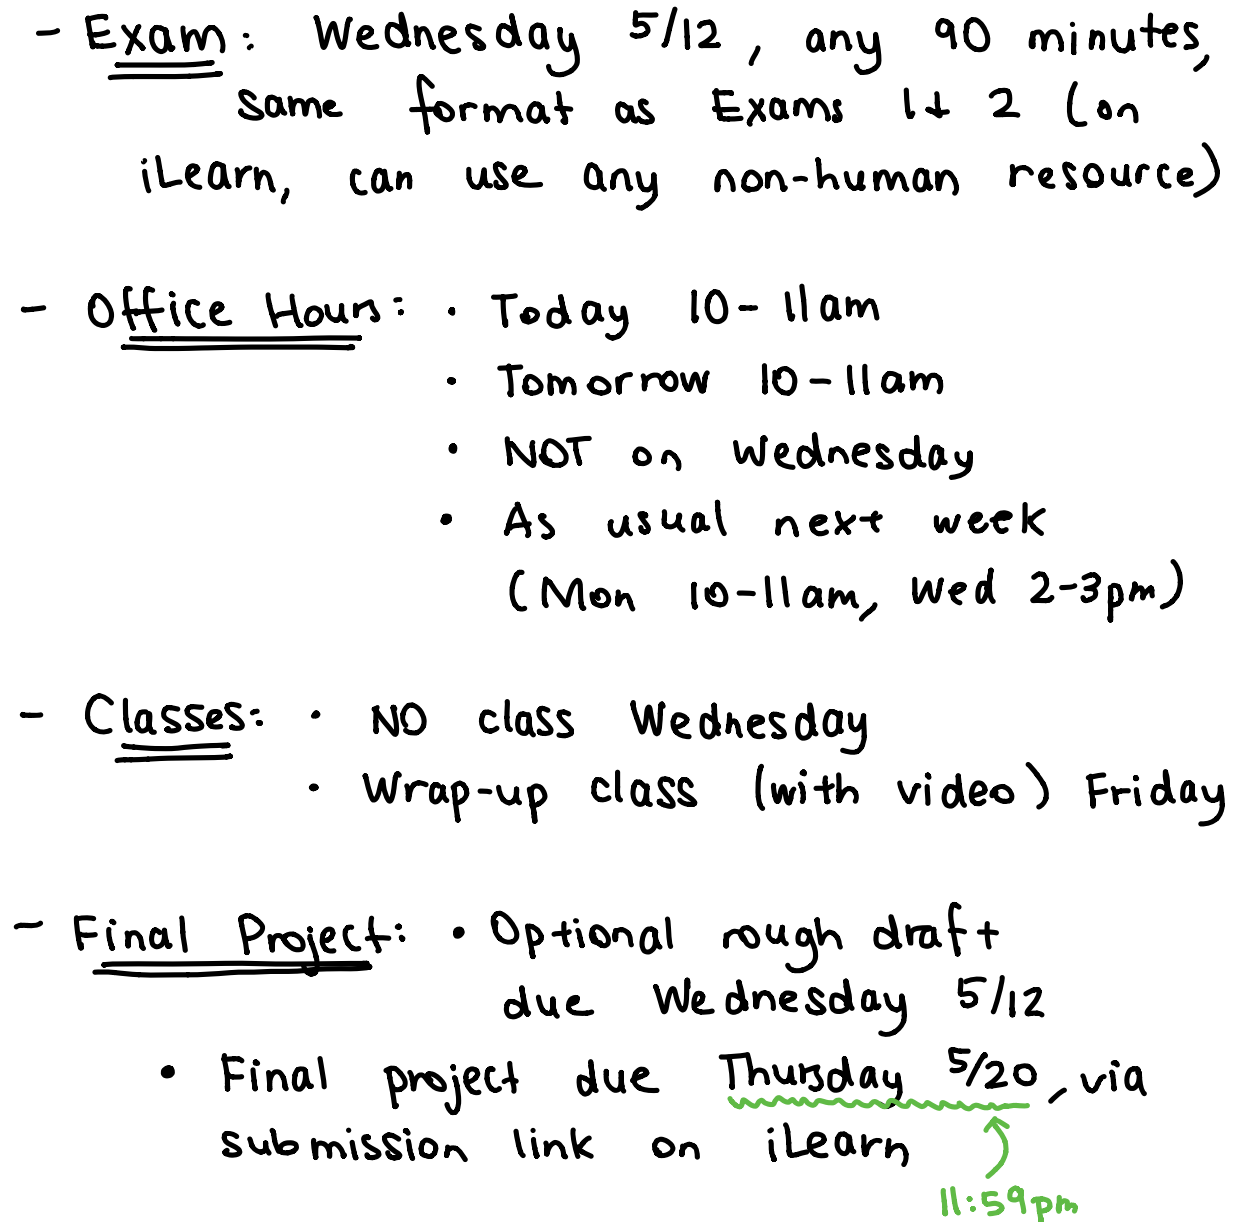 - Exam: Wednesday 5/12, any 90 minutes,
same format as Exams 1+2 (on
iLearn, can use any non-human resource)
- Office Hours: • Today 10-11am
• Tomorrow 10-11am
• NOT on Wednesday
• As usual next week
(Mon 10-11am, Wed 2-3pm)
- Classes: • NO class Wednesday
• Wrap-up class (with video) Friday
- Final Project: • Optional rough draft
due Wednesday 5/12
• Final project due Thursday 5/20, via
submission link on iLearn
11:59pm